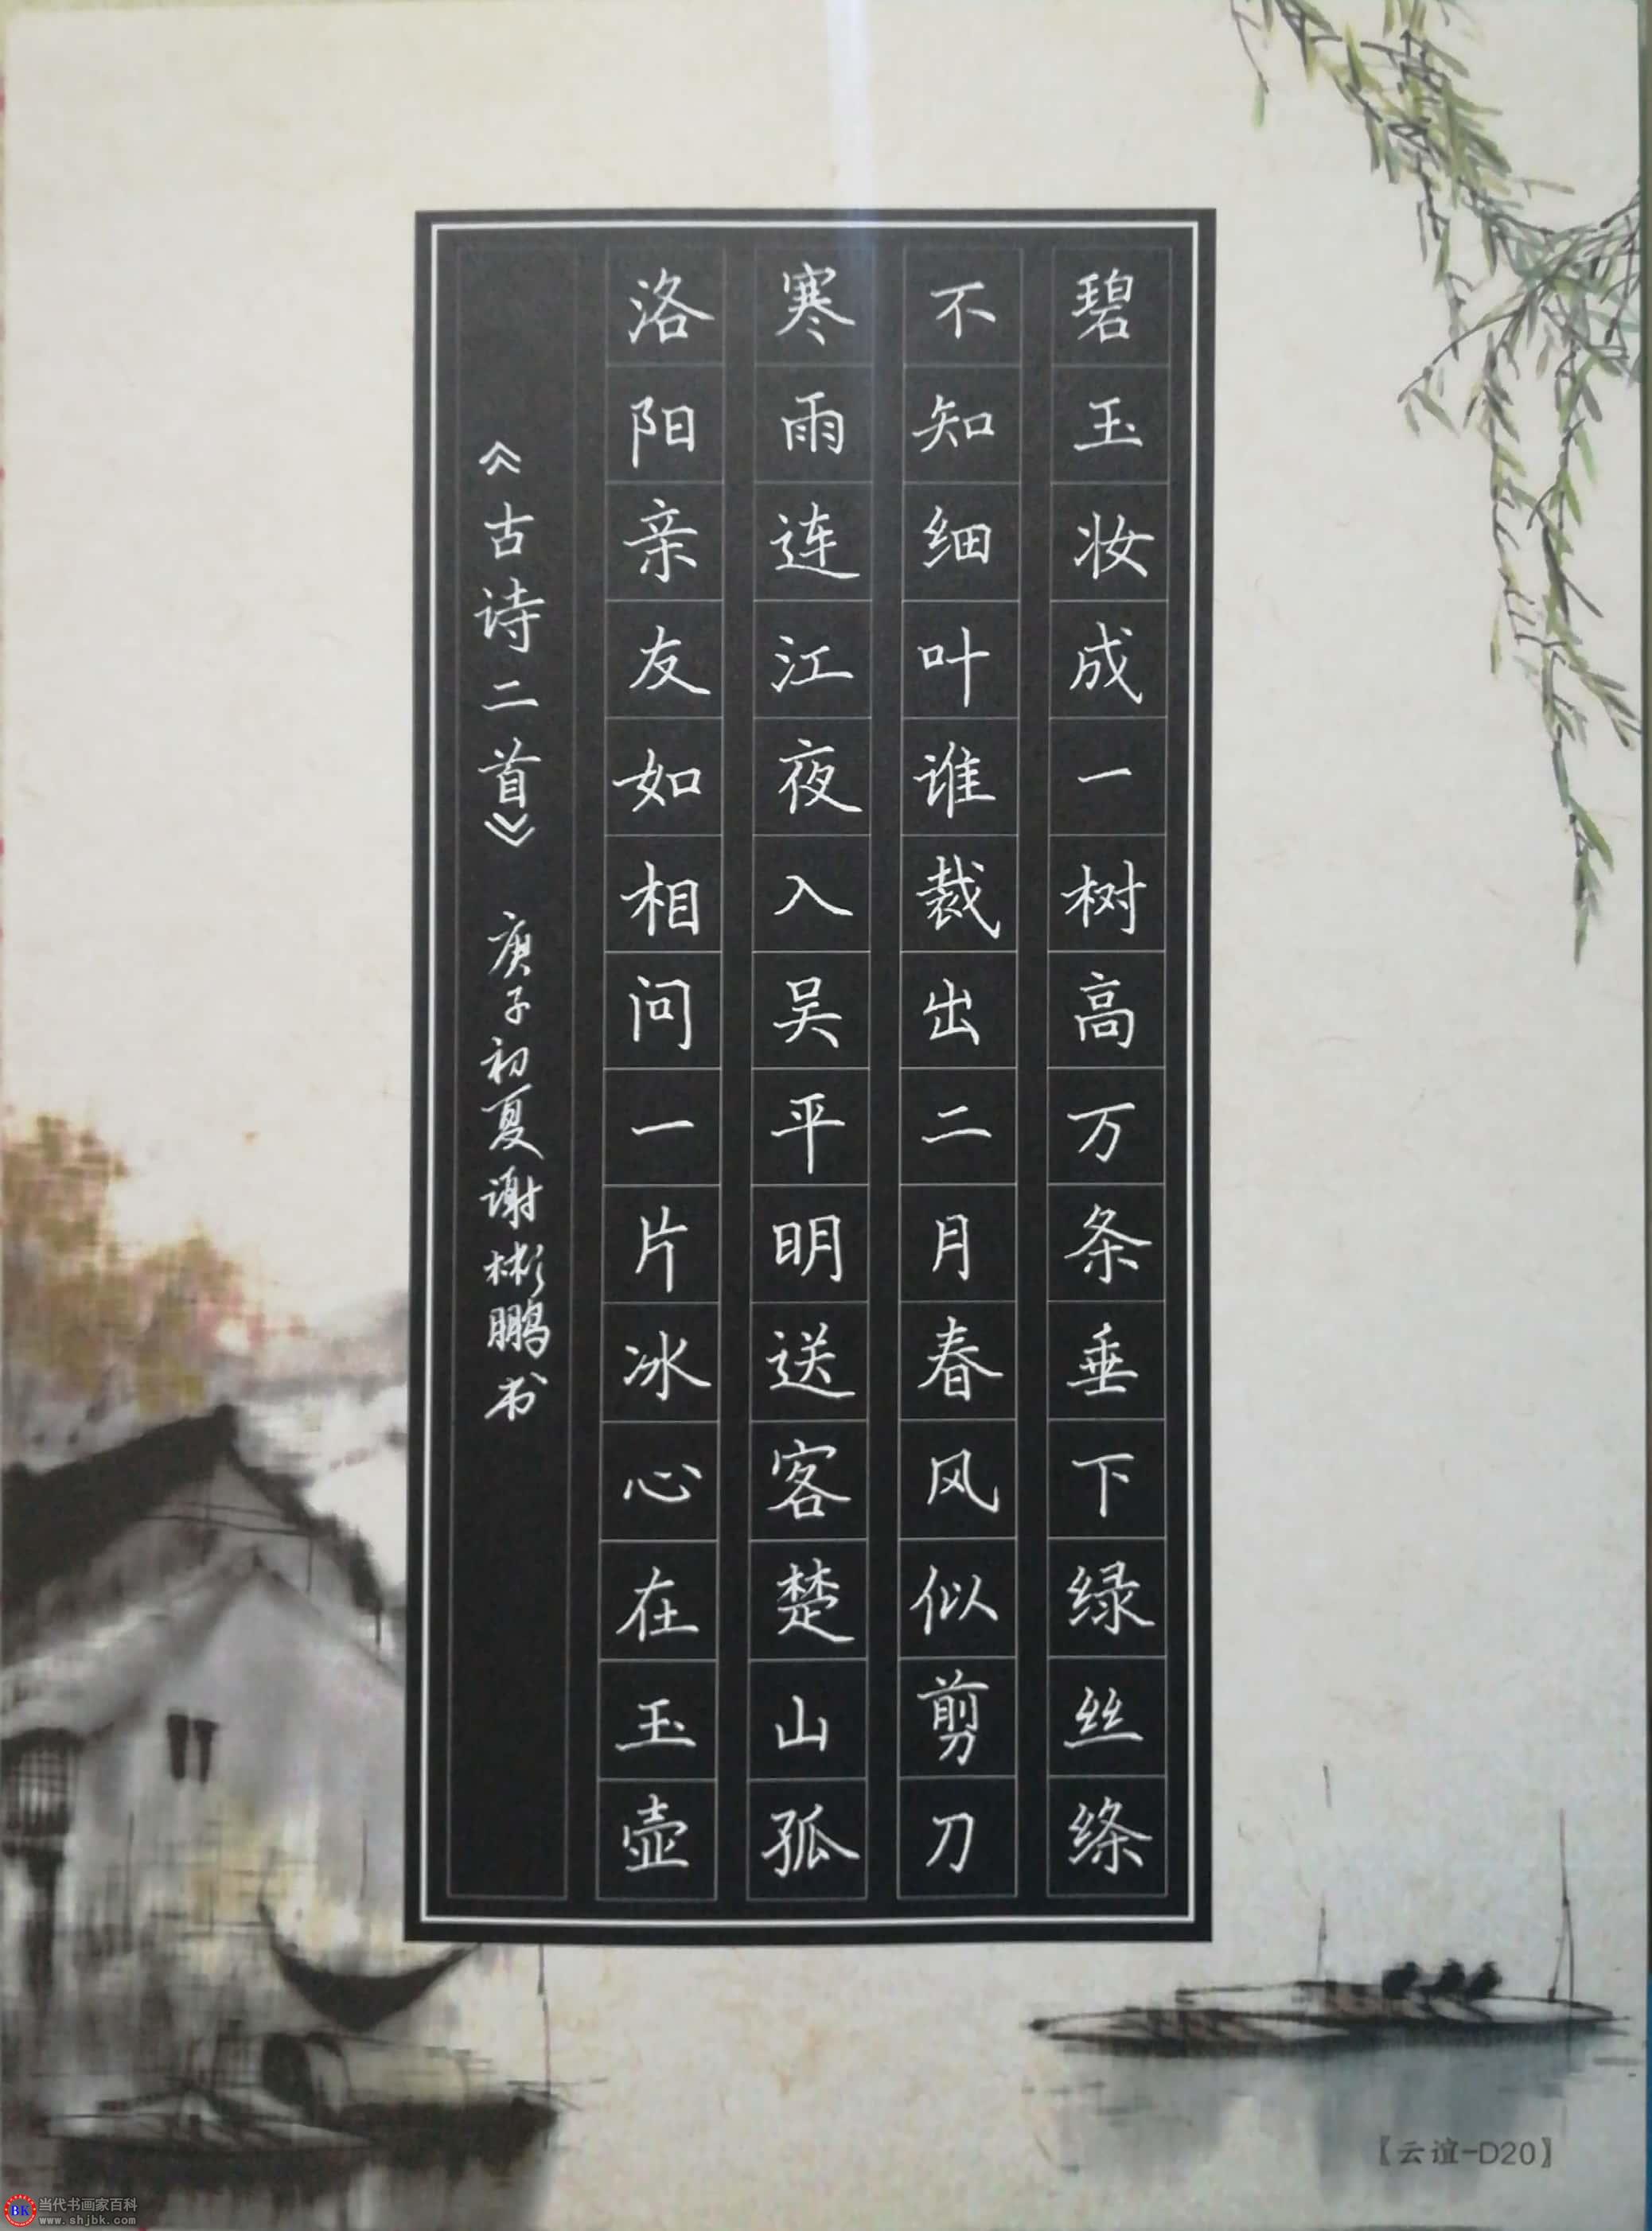 碧玉妆成一树高万条垂下绿丝绦
不知细叶谁裁出二月春风似剪刀
寒雨连江夜入吴平明送客楚山孤
洛阳亲友如相问一片冰心在玉壶
《古诗二首》庚子初夏谢彬鹏书
〖云谊-D20〗
BK 当代书画家百科
www.shjbk.com